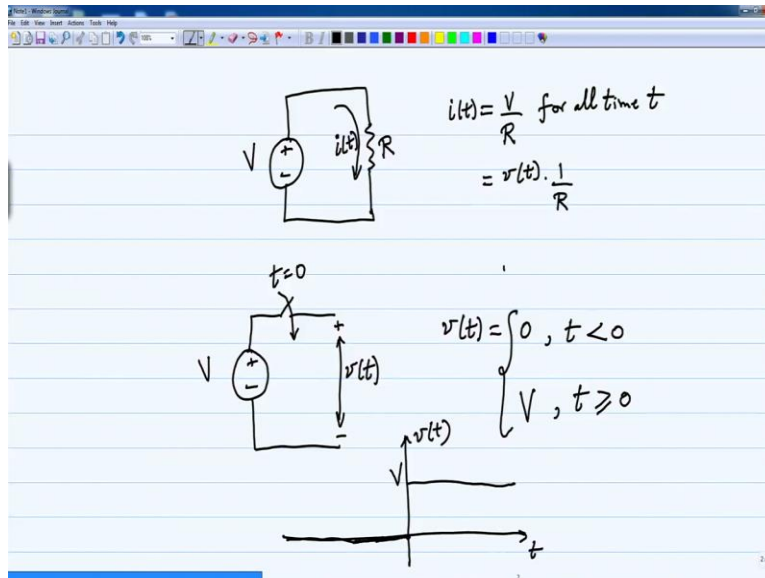 Note1 - Windows Journal
File Edit View Insert Actions Tools Help
B I
V
+
-
i(t)
R
i(t) = V/R for all time t
= v(t) . 1/R
t=0
V
+
-
+
v(t)
-
v(t) = { 0 , t < 0
V , t ⩾ 0
v(t)
V
t